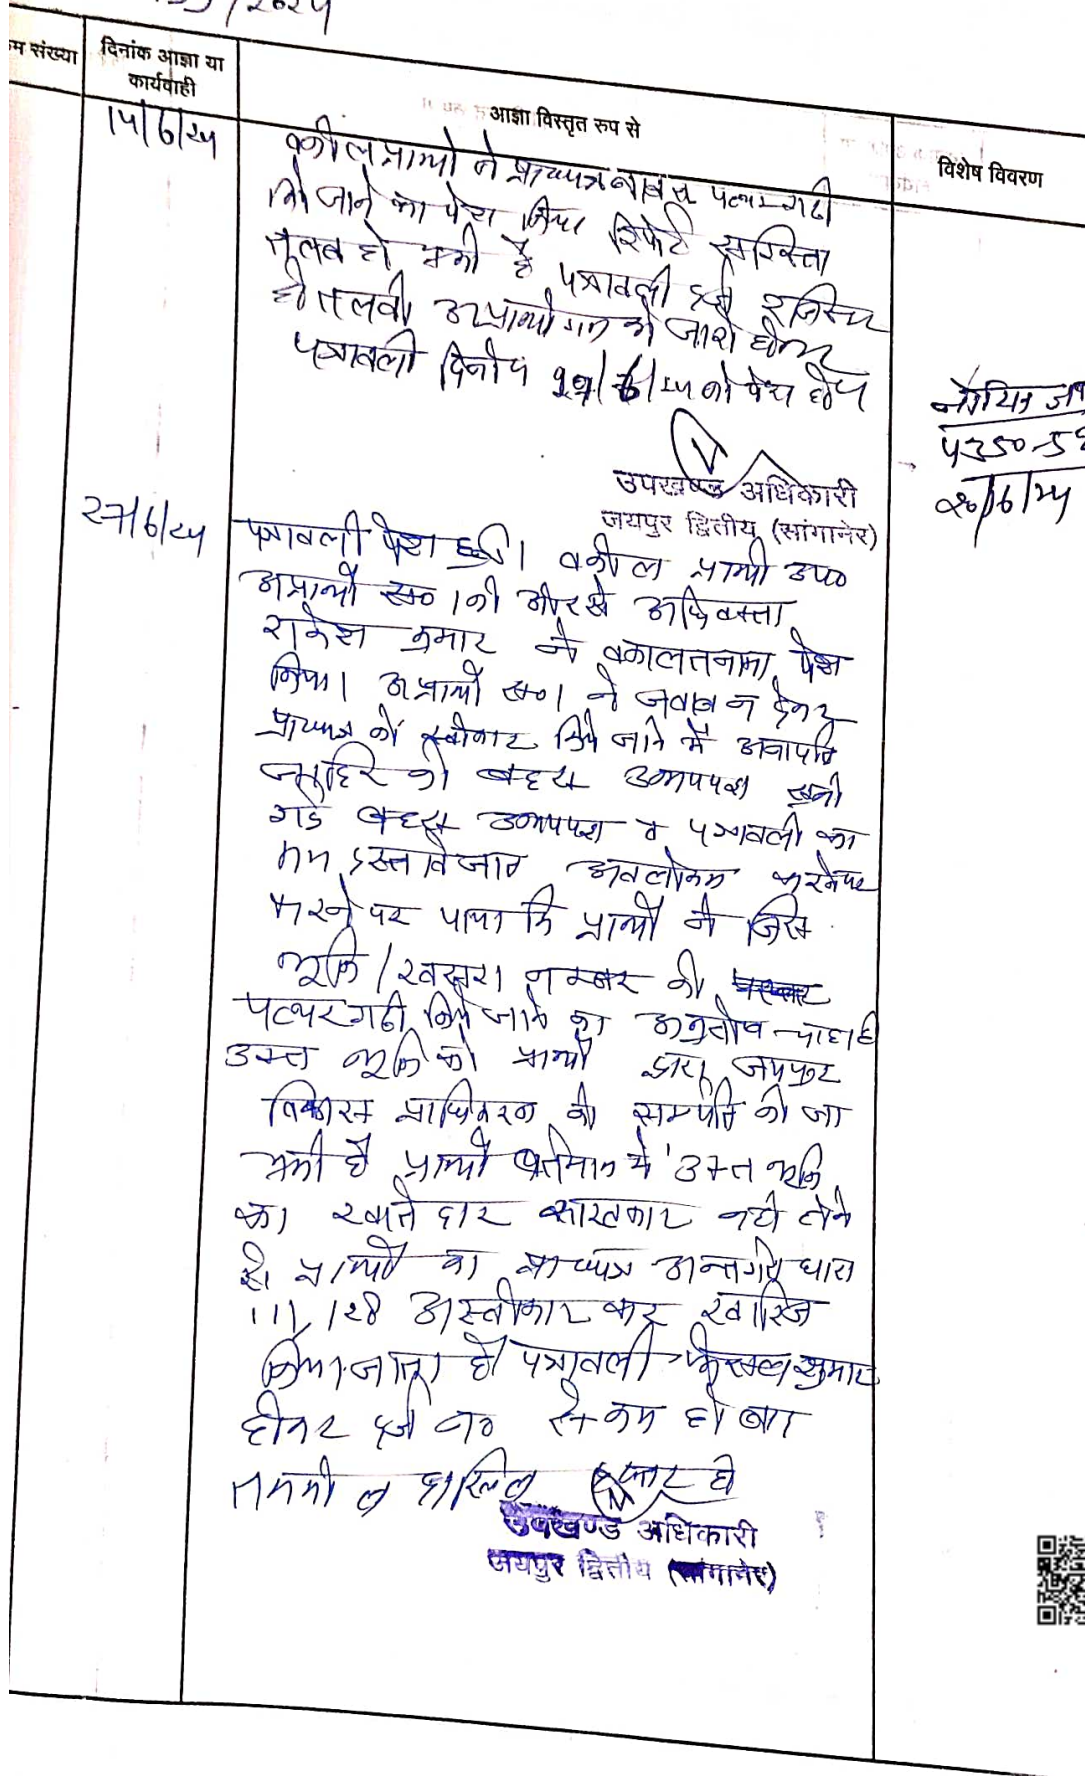 /2024
म संख्या
दिनांक आज्ञा या
कार्यवाही
आज्ञा विस्तृत रुप से
विशेष विवरण
14/6/24
वकील प्रार्थी ने प्रा०पत्र बाबत पत्थरगढी
किये जाने का पेश किया रिपोर्ट सरिस्ता
तलब हो चुकी है पत्रावली दर्ज रजिस्टर
हो तलबी अप्रार्थीगण को जारी होकर
पत्रावली दिनांक 27/6/24 को पेश होवे
उपखण्ड अधिकारी
जयपुर द्वितीय (सांगानेर)
नोटिस
4350-56
20/6/24
27/6/24
पत्रावली पेश हुई। वकील प्रार्थी उप०
अप्रार्थी स० 1 की ओर से अधिवक्ता
राकेश कुमार ने वकालतनामा पेश
किया। अप्रार्थी स० 1 ने जवाब न देकर
प्रा०पत्र को स्वीकार किये जाने में अनापत्ति
जाहिर की बहस उभयपक्ष सुनी
गई बहस उभयपक्ष व पत्रावली का
मय दस्तावेजात अवलोकन करनेपर
करने पर पाया कि प्रार्थी ने जिस
भूमि/खसरा नम्बर की
पत्थरगढी किये जाने का अनुतोष चाहा है
उक्त भूमि को प्रार्थी द्वारा जयपुर
विकास प्राधिकरण को सम्पत्ति की जा
चुकी है प्रार्थी वर्तमान में उक्त भूमि
का खातेदार काश्तकार नही होने
से प्रार्थी का प्रा०पत्र अन्तर्गत धारा
111, 128 अस्वीकार कर खारिज
किया जाता है। पत्रावली फैसल शुमार
होकर दर्ज न० से कम हो बाद
तकमील दाखिल दफ्तर हो
उपखण्ड अधिकारी
जयपुर द्वितीय (सांगानेर)